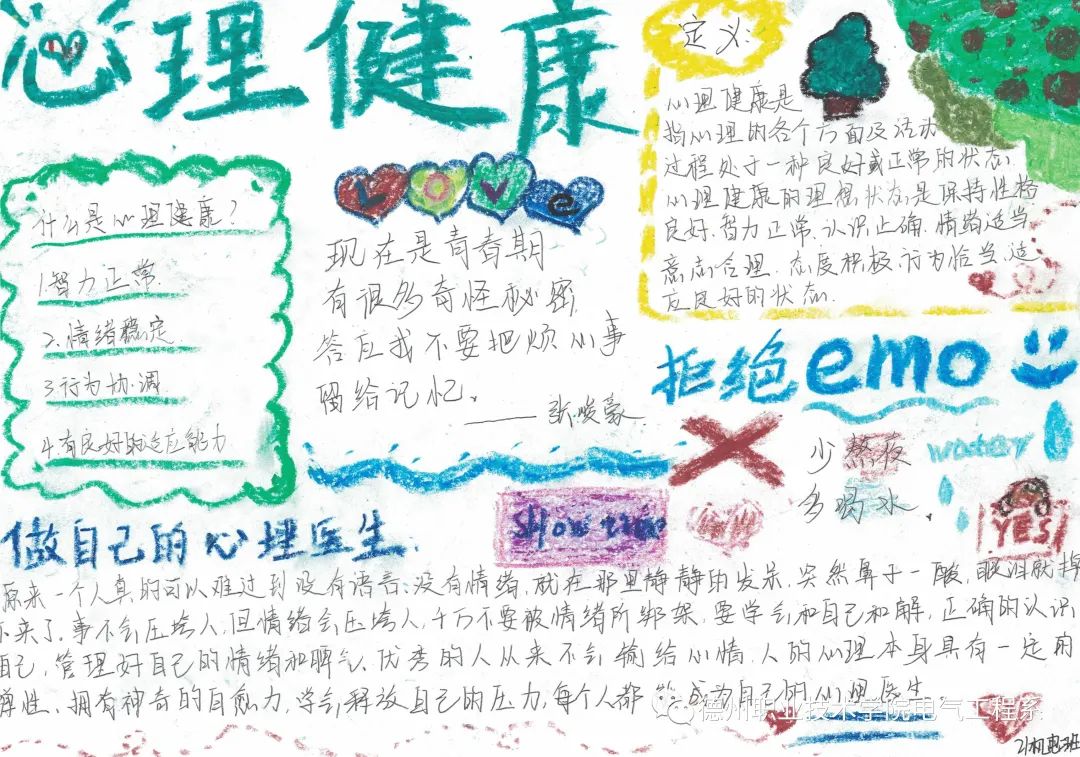 心理健康
什么是心理健康?
1.智力正常.
2.情绪稳定
3.行为协调.
4.有良好的适应能力
LOVe
现在是青春期
有很多奇怪秘密,
答应我不要把烦心事
留给记忆。
——张峻豪
定义:
心理健康是
指心理的各个方面及活动
过程处于一种良好或正常的状态.
心理健康的理想状态是保持性格
良好.智力正常.认识正确.情绪适当.
意志合理.态度积极.行为恰当.适
应良好的状态.
拒绝emo
少熬夜
多喝水.
water
YES
Show time
做自己的心理医生.
原来一个人真的可以难过到没有语言.没有情绪,就在那里静静的发呆.突然鼻子一酸,眼泪就掉
下来了.事不会压垮人,但情绪会压垮人,千万不要被情绪所绑架,要学会和自己和解,正确的认识
自己,管理好自己的情绪和脾气.优秀的人从来不会输给心情.人的心理本身具有一定的
弹性.拥有神奇的自愈力,学会释放自己的压力,每个人都 成为自己的心理医生.
德州职业技术学院电气工程系
21机电班